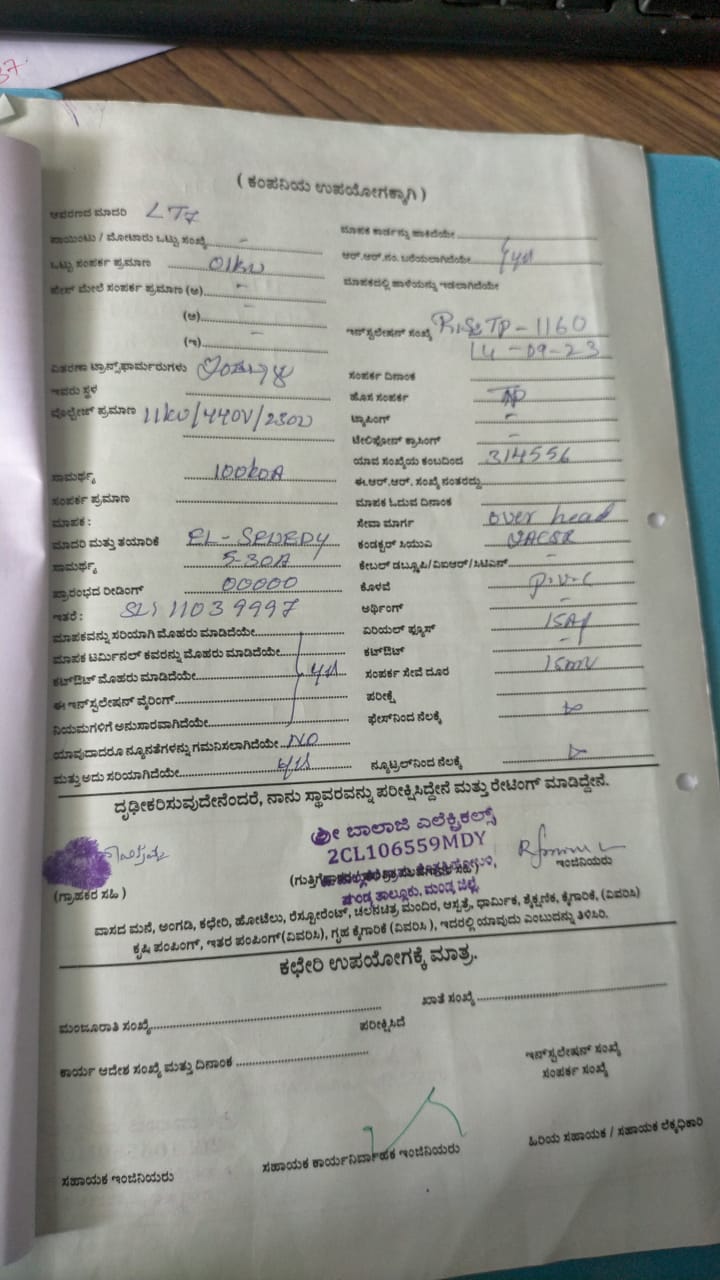 37
( ಕಂಪನಿಯ ಉಪಯೋಗಕ್ಕಾಗಿ )
ಆವರಣದ ಮಾದರಿ LT7
ಪಾಯಿಂಟು / ಮೋಟಾರು ಒಟ್ಟು ಸಂಖ್ಯೆ -
ಮಾಪಕ ಕಾರ್ಡನ್ನು ಹಾಕಿದೆಯೇ
ಒಟ್ಟು ಸಂಪರ್ಕ ಪ್ರಮಾಣ 01kw
ಆರ್.ಆರ್.ನಂ. ಬರೆಯಲಾಗಿದೆಯೇ yes
ಫೇಸ್ ಮೇಲೆ ಸಂಪರ್ಕ ಪ್ರಮಾಣ (ಅ) -
ಮಾಪಕದಲ್ಲಿ ಹಾಳೆಯನ್ನು ಇಡಲಾಗಿದೆಯೇ
(ಆ) -
(ಇ) -
ಇನ್‌ಸ್ಟಲೇಷನ್ ಸಂಖ್ಯೆ TP-1160
14-09-23
ವಿತರಣಾ ಟ್ರಾನ್ಸ್‌ಫಾರ್ಮರುಗಳು
ಇವರು ಸ್ಥಳ
ಸಂಪರ್ಕ ದಿನಾಂಕ
ಹೊಸ ಸಂಪರ್ಕ TP
ವೋಲ್ಟೇಜ್ ಪ್ರಮಾಣ 11kv/440V/230v
ಟ್ಯಾಪಿಂಗ್ -
ಟೆಲಿಫೋನ್ ಕ್ರಾಸಿಂಗ್ -
ಯಾವ ಸಂಖ್ಯೆಯ ಕಂಬದಿಂದ 314556
ಸಾಮರ್ಥ್ಯ 100kvA
ಈ.ಆರ್.ಆರ್. ಸಂಖ್ಯೆ ನಂತರದ್ದು
ಸಂಪರ್ಕ ಪ್ರಮಾಣ
ಮಾಪಕ ಓದುವ ದಿನಾಂಕ
ಮಾಪಕ :
ಸೇವಾ ಮಾರ್ಗ over head
ಮಾದರಿ ಮತ್ತು ತಯಾರಿಕೆ
ಕಂಡಕ್ಟರ್ ಸಿಯುವಿ
ಸಾಮರ್ಥ್ಯ 5-30A
ಕೇಬಲ್ ಡಬ್ಲ್ಯೂಪಿ/ವಿಐಆರ್/ಸಿಟಿಎನ್ -
ಪ್ರಾರಂಭದ ರೀಡಿಂಗ್ 00000
ಕೊಳವೆ P.V.C
ಇತರೆ : 11039997
ಅರ್ಥಿಂಗ್
ಮಾಪಕವನ್ನು ಸರಿಯಾಗಿ ಮೊಹರು ಮಾಡಿದೆಯೇ
ಏರಿಯಲ್ ಫ್ಯೂಸ್ 15Af
ಮಾಪಕ ಟರ್ಮಿನಲ್ ಕವರನ್ನು ಮೊಹರು ಮಾಡಿದೆಯೇ
ಕಟ್‌ಔಟ್ -
ಕಟ್‌ಔಟ್ ಮೊಹರು ಮಾಡಿದೆಯೇ yes
ಸಂಪರ್ಕ ಸೇವೆ ದೂರ
ಈ ಇನ್‌ಸ್ಟಲೇಷನ್ ವೈರಿಂಗ್
ಪರೀಕ್ಷೆ
ನಿಯಮಗಳಿಗೆ ಅನುಸಾರವಾಗಿದೆಯೇ
ಫೇಸ್‌ನಿಂದ ನೆಲಕ್ಕೆ
ಯಾವುದಾದರೂ ನ್ಯೂನತೆಗಳನ್ನು ಗಮನಿಸಲಾಗಿದೆಯೇ NO
ಮತ್ತು ಅದು ಸರಿಯಾಗಿದೆಯೇ yes
ನ್ಯೂಟ್ರಲ್‌ನಿಂದ ನೆಲಕ್ಕೆ
ದೃಢೀಕರಿಸುವುದೇನೆಂದರೆ, ನಾನು ಸ್ಥಾವರವನ್ನು ಪರೀಕ್ಷಿಸಿದ್ದೇನೆ ಮತ್ತು ರೇಟಿಂಗ್ ಮಾಡಿದ್ದೇನೆ.
ಶ್ರೀ ಬಾಲಾಜಿ ಎಲೆಕ್ಟ್ರಿಕಲ್ಸ್
2CL106559MDY
ಇಂಜಿನಿಯರು
(ಗ್ರಾಹಕರ ಸಹಿ )
ಮಂಡ್ಯ ತಾಲ್ಲೂಕು, ಮಂಡ್ಯ ಜಿಲ್ಲೆ.
ವಾಸದ ಮನೆ, ಅಂಗಡಿ, ಕಛೇರಿ, ಹೋಟೆಲು, ರೆಸ್ಟೋರೆಂಟ್, ಚಲನಚಿತ್ರ ಮಂದಿರ, ಆಸ್ಪತ್ರೆ, ಧಾರ್ಮಿಕ, ಶೈಕ್ಷಣಿಕ, ಕೈಗಾರಿಕೆ, (ವಿವರಿಸಿ)
ಕೃಷಿ ಪಂಪಿಂಗ್, ಇತರ ಪಂಪಿಂಗ್(ವಿವರಿಸಿ), ಗೃಹ ಕೈಗಾರಿಕೆ (ವಿವರಿಸಿ ), ಇದರಲ್ಲಿ ಯಾವುದು ಎಂಬುದನ್ನು ತಿಳಿಸಿರಿ.
ಕಛೇರಿ ಉಪಯೋಗಕ್ಕೆ ಮಾತ್ರ.
ಮಂಜೂರಾತಿ ಸಂಖ್ಯೆ
ಖಾತೆ ಸಂಖ್ಯೆ
ಪರೀಕ್ಷಿಸಿದೆ
ಕಾರ್ಯ ಆದೇಶ ಸಂಖ್ಯೆ ಮತ್ತು ದಿನಾಂಕ
ಇನ್‌ಸ್ಟಲೇಷನ್ ಸಂಖ್ಯೆ
ಸಂಪರ್ಕ ಸಂಖ್ಯೆ
ಸಹಾಯಕ ಇಂಜಿನಿಯರು
ಸಹಾಯಕ ಕಾರ್ಯನಿರ್ವಾಹಕ ಇಂಜಿನಿಯರು
ಹಿರಿಯ ಸಹಾಯಕ / ಸಹಾಯಕ ಲೆಕ್ಕಾಧಿಕಾರಿ